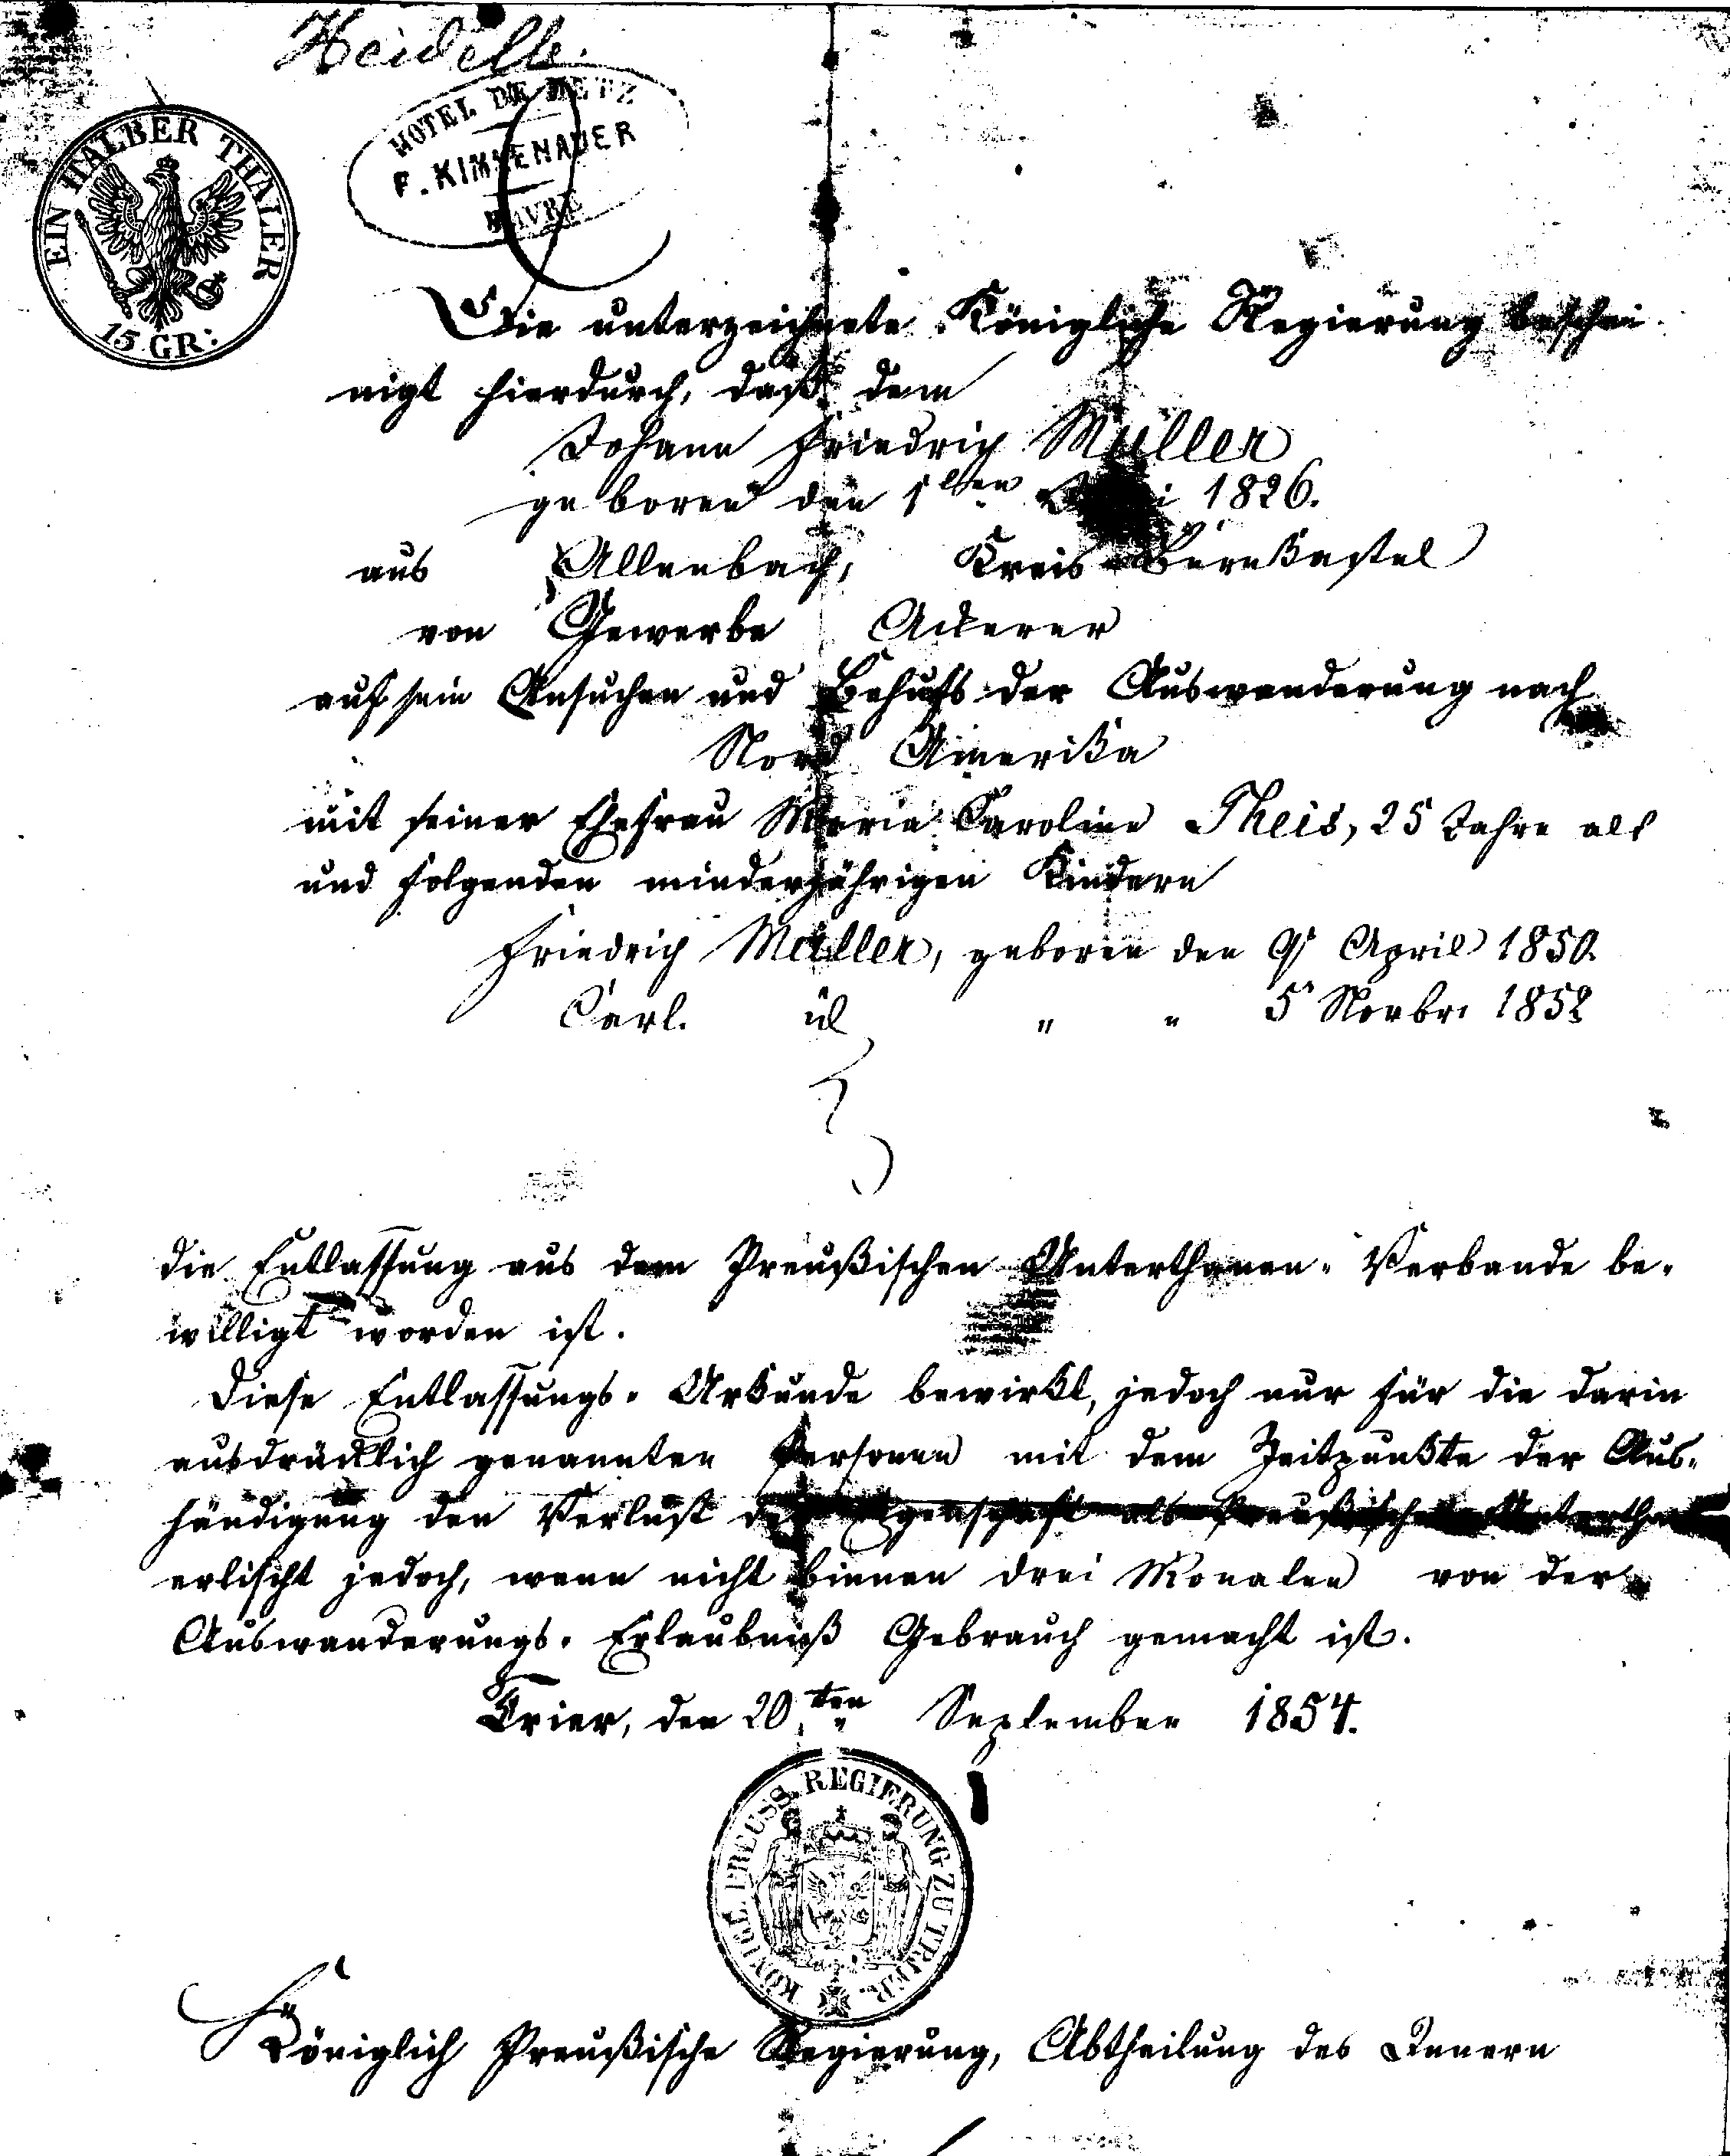 Heidelb.
HOTEL DE METZ
HAVRE
EIN HALBER THALER
15 GR:
Die unterzeichnete Königliche Regierung beschei
nigt hierdurch, daß dem
Johann Friedrich Müller
geboren den 1ten 1826.
aus Allenbach, Kreis Bernkastel
von Gewerbe Ackerer
auf sein Ansuchen und Behufs der Auswanderung nach
Nord Amerika
mit seiner Ehefrau Maria Caroline Theis, 25 Jahre alt
und folgenden minderjährigen Kindern
Friedrich Müller, geboren den 9 April 1850.
Carl. id " " 5 Novbr. 1852
die Entlassung aus dem Preußischen Unterthanen-Verbande be-
willigt worden ist.
Diese Entlassungs-Urkunde bewirkt, jedoch nur für die darin
ausdrücklich genannten Personen mit dem Zeitpunkte der Aus-
händigung den Verlust der Eigenschaft als Preußischer Unterthan
erlischt jedoch, wenn nicht binnen drei Monaten von der
Auswanderungs-Erlaubniß Gebrauch gemacht ist.
Trier, den 20ten September 1854.
KÖNIGL. PREUSS. REGIERUNG ZU TRIER.
Königlich Preußische Regierung, Abtheilung des Innern